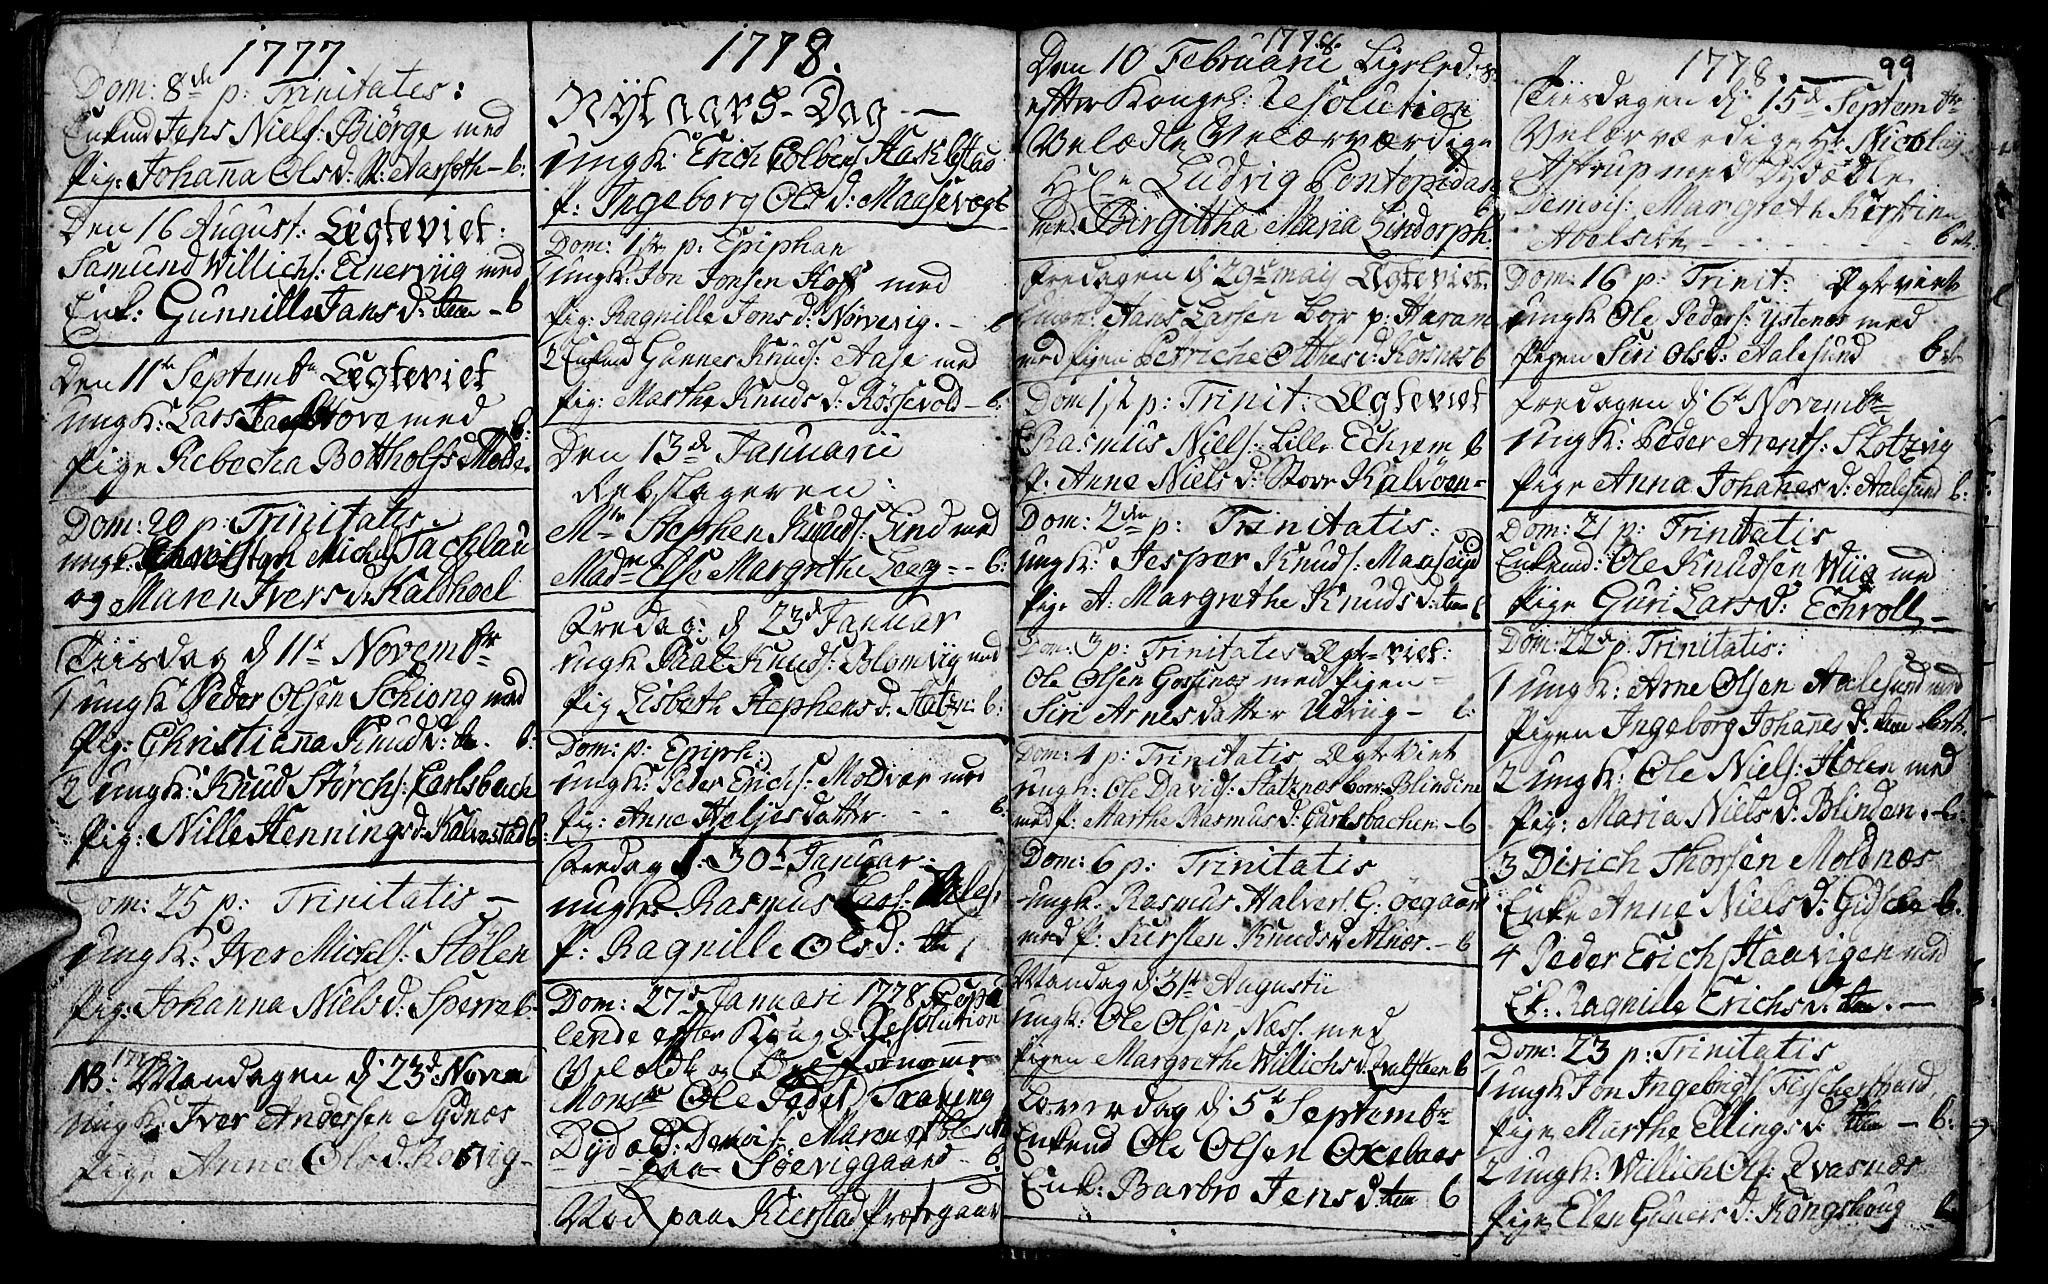 1777
Dom: 8de p: Trinitates:
Enkmd Jens Niels: Biörge med
Pig: Johanna Ols d: Aarseth - b:
Den 16 August: Egteviet:
Samund Willichs: Einerviig med
Enk: Gunnille Jans d: item - b
Den 11te Septembr Egteviet
Ungk: Lars Hove med
Pige Rebecha Bottholfs d: b:
Dom: 20 p: Trinitatis
ungk: Michel Tachlau
og Maren Ivers d: Kaldhoel
Tiisdag d 11te Novembr
1 ungk Peder Olsen Schiong med
Pig: Christiana Knuds d: item. b:
2 ungk: Knud Störchs: Carlsbach
Pig: Nille Hennings d: Kalvestad b
Dom: 25 p: Trinitatis -
Ungk: Iver Michels: Stölen
Pig: Johanna Niels d: Sperre b-
NB: 1778 Mandagen d: 23de Novem
ungk: Iver Andersen Sydnæs
Pige Anna Ols d. -
1778.
Nyt aars-Dag -
Ungk: Erich Colbens: Hasselstad
P: Ingeborg Ols d: Maasevog b
Dom: 1ste p: Epiphan
1 ungk: Jon Jonsen Hoff med
Pig: Ragnille Jons d: Nörvevig. - b
2 Enkmd Gunner Knuds: Aase med
Pig: Marthe Knuds d: Rössevold - b:
Den 13de Januarii
Rebslageren:
Mr Stephen Knuds: Lind med
Madme Else Margrethe Leeg - - b:
Fredag: d 23de Januar
Ungk Paal Knuds: Blomvig med
Pig Lisbeth Stephens d: b:
Dom: p: Epiph:
ungk: Peder Erichs: Modvær med
Pig: Anne Heljesdatter - - b:
Fredag d: 30te Januar:
ungk: Rasmus Lars:
P: Ragnille Ols d: item
Dom: 27de Januari 1778
lende efter Kong: Resolution
Velædle og
Monsr Ole Peders:
Dydæd: Demois: Maren
paa Söeviggaard - b.
Viet paa Kierstad Præstegaar
1778.
Den 10 Februarii
efter Kongel: Resolution
Velædle Velærværdige
Hr Ludvig Pontopidan
med Birgitha Maria Lindorph. b
Fredagen d: 29de May Egteviet
Hans Larsen boer p: Haram
med Pigen Petriche Olthes d: Korsnæs b
Dom 1ste p: Trinit: Egteviet
E. Rasmus Niels: Lille Echrem b
P. Anne Niels d: Store Kalvöen -
Dom: 2den p: Trinitatis:
ungk: Jesper Knuds: Maaseid
Pige A: Margrethe Knuds d: item b
Dom: 3 p: Trinitates Egt-viet:
Ole Olsen Godsnæs med Pigen -
Siri Arnesdatter Udvig - b:
Dom: 4 p: Trinitatis Egt Viet
ungk: Ole Davids: Slatznæs boer Blindem
med P: Marthe Rasmus d: Carlsbachen - b
Dom: 6 p: Trinitatis
ungk: Rasmus Halvers: G: öegaard
med P: Kirsten Knuds d: Alnæs. - b
Mandag d: 31te Augustii
ungk: Ole Olsen Næss: med
Pigen Margrethe Willichs d. b
Löverdag d: 5te Septembr
Enkemd Ole Olsen Oxelaas
Enk: Barbro Jens d: item b
1778. 99
Tiisdagen d: 15de Septembr
Velærværdige Hr Nicolay
Astrup med Dydædle
Demois: Margreth Kirstin
Abelseth - - - - b
Dom: 16 p: Trinit: Egtviet
ungk Ole Peders: Ystenæs med
Pigen Siri Ols d: Aalesund b
Fredagen d: 6te Novembr
1 ungk: Peder Arents: Slotzvig
Pige Anna Johanes d: Aalesund b:
Dom: 21 p: Trinitatis
Enkemd: Ole Knudsen Wiig med
Pige Guri Lars d: Echroll -
Dom: 22de p: Trinitatis:
1 ungk: Arne Olsen Aalesund med
Pigen Ingeborg Johanes d: item - b
2 ungk: Ole Niels: Holen med
Pig: Maria Niels d: Blinden. - b
3 Dirich Thorsen Moldnæs
Enke Anne Niels d: Gidsche b.
4 Peder Erichs: Haavigen med
Ek: Ragnille Erichs d: item. -
Dom: 23 p: Trinitatis
1 ungk Jon Ingebrigts: Fischerstrand
Pige Marthe Ellings d: item - b:
2 ungk: Willich Ols: Qvasnæs
Pige Elen Guners d: Kongshoug b